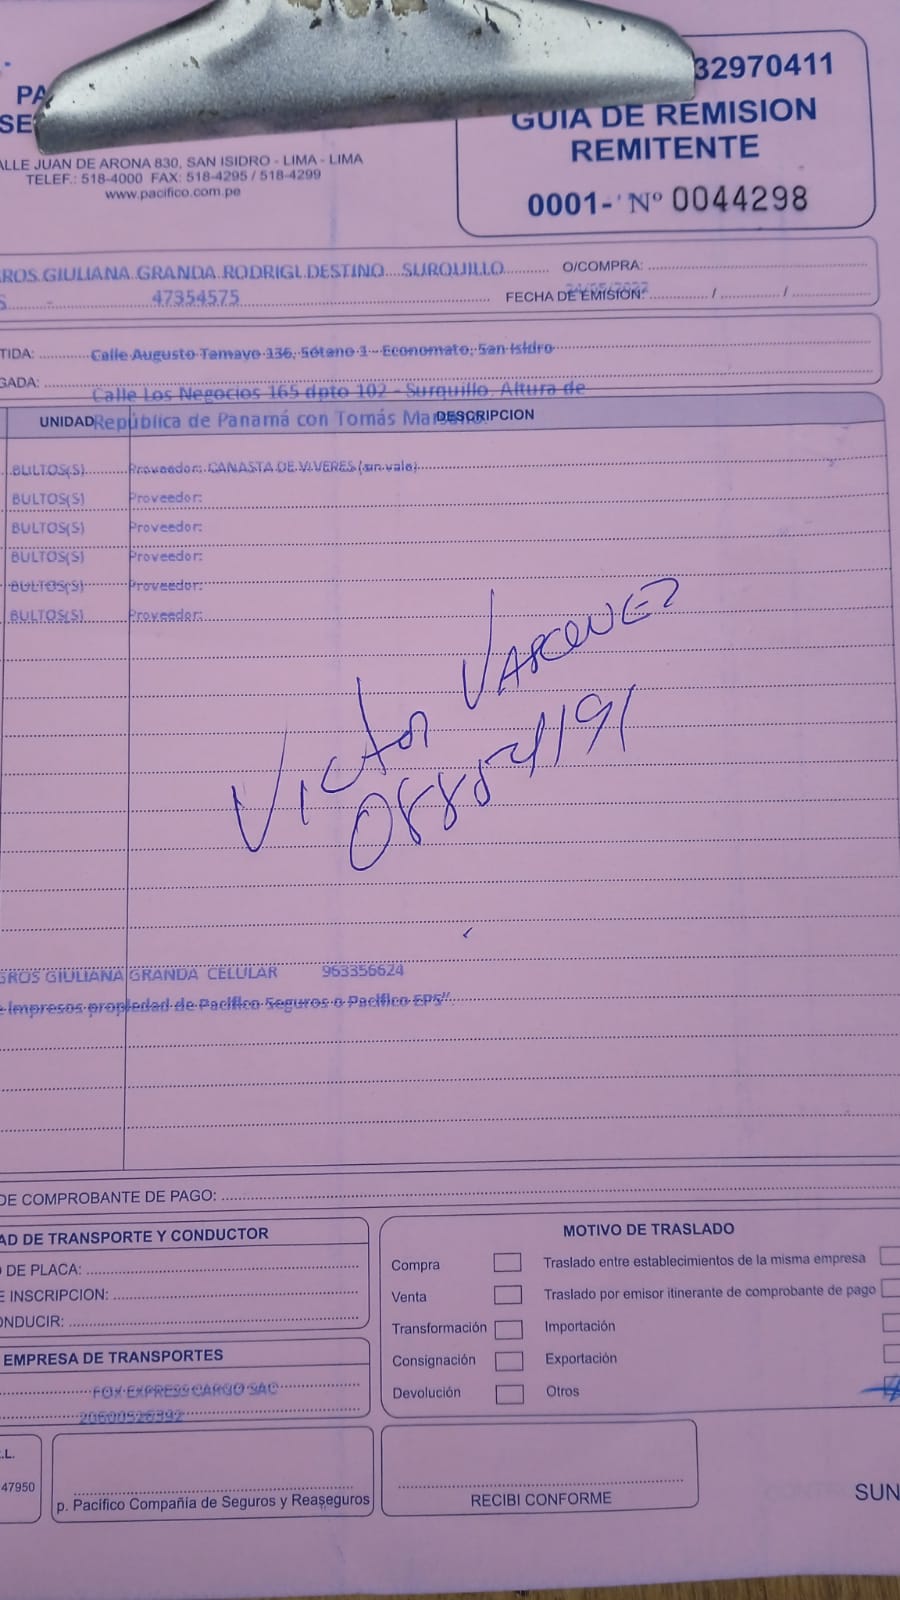 PA
32970411
SE
GUIA DE REMISION
REMITENTE
ALLE JUAN DE ARONA 830, SAN ISIDRO - LIMA - LIMA
TELEF.: 518-4000 FAX: 518-4295 / 518-4299
www.pacifico.com.pe
0001- Nº 0044298
ROS GIULIANA GRANDA RODRIGI DESTINO SURQUILLO O/COMPRA:
S - 47354575 FECHA DE EMISION: / /
TIDA: Calle Augusto Tamayo 136, Sótano 1 - Economato, San Isidro
GADA: Calle Los Negocios 165 dpto 102 - Surquillo. Altura de
República de Panamá con Tomás
UNIDAD DESCRIPCION
BULTOS(S) Proveedor: CANASTA DE VIVERES (sin vale)
BULTOS(S) Proveedor:
BULTOS(S) Proveedor:
BULTOS(S) Proveedor:
BULTOS(S) Proveedor:
BULTOS(S) Proveedor:
Victor VASQUEZ
GROS GIULIANA GRANDA CELULAR 963356624
e Impresos propiedad de Pacífico Seguros o Pacífico EPS"
DE COMPROBANTE DE PAGO:
AD DE TRANSPORTE Y CONDUCTOR
O DE PLACA:
E INSCRIPCION:
ONDUCIR:
EMPRESA DE TRANSPORTES
FOX EXPRESS CARGO SAC
20600526392
MOTIVO DE TRASLADO
Compra Traslado entre establecimientos de la misma empresa
Venta Traslado por emisor itinerante de comprobante de pago
Transformación Importación
Consignación Exportación
Devolución Otros
.L.
47950
p. Pacífico Compañía de Seguros y Reaseguros
RECIBI CONFORME
SUN